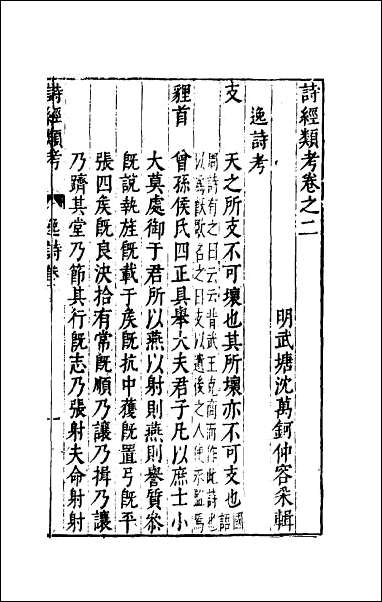 詩經類考卷之二
明武塘沈萬鈳仲容采輯
逸詩考
支
天之所支不可壞也其所壞亦不可支也國語
周詩有之曰云云昔武王克商而作此詩也
以爲飫歌名之曰支以遺後之人使永監焉
貍首
曾孫侯氏四正具舉大夫君子凡以庶士小
大莫處御于君所以燕以射則燕則譽質參
既說執旌既載于侯既抗中獲既置弓既平
張四侯既良決拾有常既順乃讓乃揖乃讓
乃隮其堂乃節其行既志乃張射夫命射射
詩經類考
逸詩卷二
一